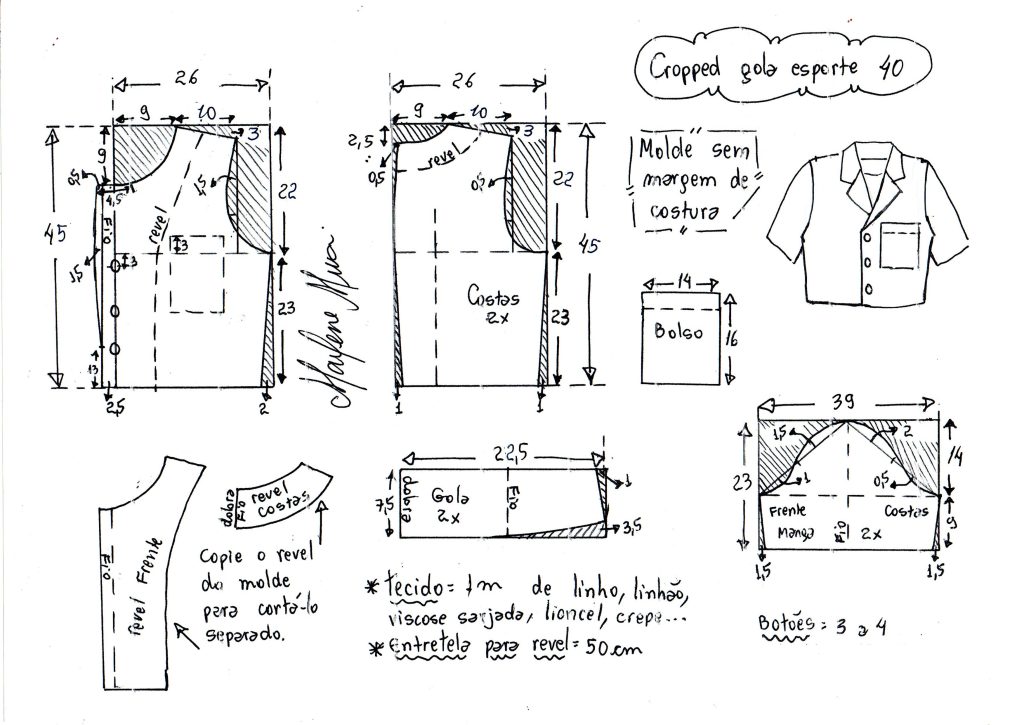 Cropped gola esporte 40
26
9
10
3
9
0,5
4,5
1,5
Fio
revel
22
45
3
1,5
3
23
13
2,5
2
Marlene Mukai
26
9
10
3
2,5
0,5
revel
0,5
22
45
Costas
2x
23
1
1
"Molde sem
margem de
costura"
14
Bolso
16
39
1,5
2
14
23
1
0,5
Frente
Costas
Manga
Fio
2x
9
1,5
1,5
22,5
7,5
dobra
Gola
2x
Fio
1
3,5
Fio
revel Frente
dobra
Fio
revel
costas
Copie o revel
do molde
para cortá-lo
separado.
* Tecido = 1m de linho, linhão,
viscose sarjada, lioncel, crepe...
* Entretela para revel = 50cm
Botões = 3 a 4